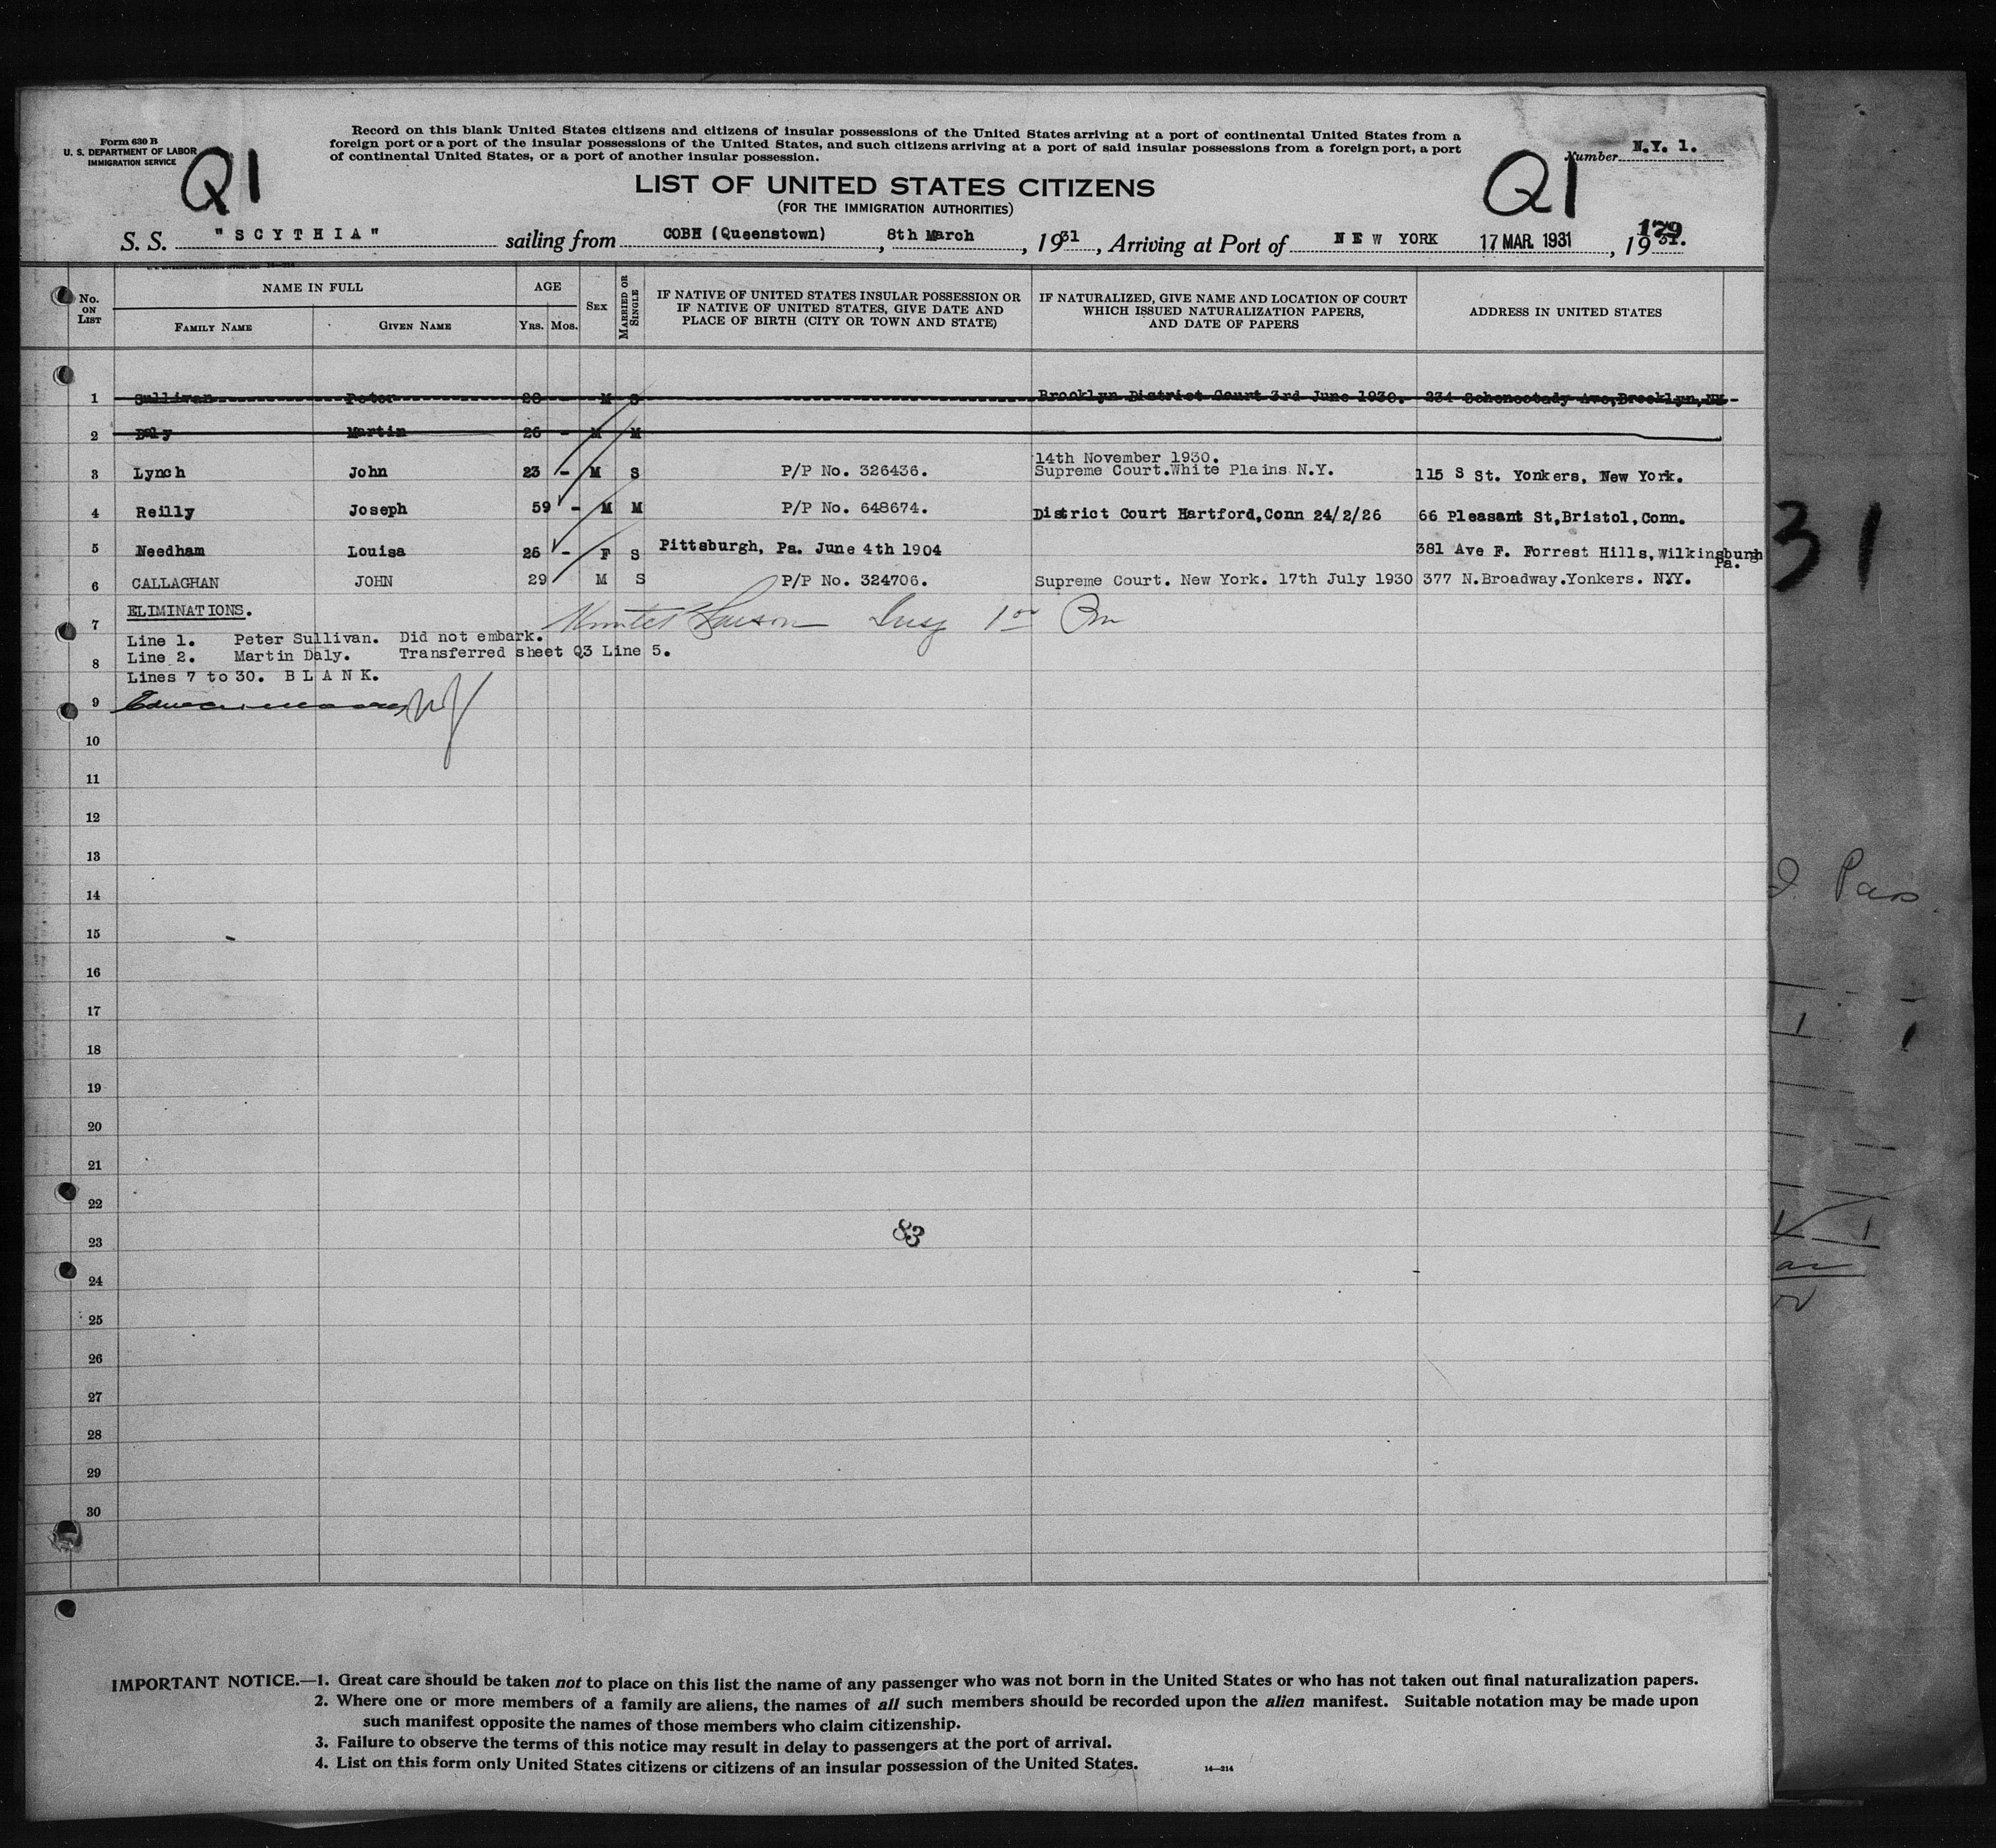 Form 630 B
U. S. DEPARTMENT OF LABOR
IMMIGRATION SERVICE
Q1
Record on this blank United States citizens and citizens of insular possessions of the United States arriving at a port of continental United States from a
foreign port or a port of the insular possessions of the United States, and such citizens arriving at a port of said insular possessions from a foreign port, a port
of continental United States, or a port of another insular possession.
Number N.Y. 1.
Q1
LIST OF UNITED STATES CITIZENS
(FOR THE IMMIGRATION AUTHORITIES)
179
S. S. "SCYTHIA" sailing from COBH (Queenstown), 8th March, 1931, Arriving at Port of NEW YORK 17 MAR. 1931, 1931.
No. ON LIST
NAME IN FULL
FAMILY NAME GIVEN NAME
AGE
YRS. MOS.
SEX
MARRIED OR SINGLE
IF NATIVE OF UNITED STATES INSULAR POSSESSION OR
IF NATIVE OF UNITED STATES, GIVE DATE AND
PLACE OF BIRTH (CITY OR TOWN AND STATE)
IF NATURALIZED, GIVE NAME AND LOCATION OF COURT
WHICH ISSUED NATURALIZATION PAPERS,
AND DATE OF PAPERS
ADDRESS IN UNITED STATES
1 Sullivan Peter 28 - M S Brooklyn District Court 3rd June 1930. 234 Schenectady Ave, Brooklyn, NY
2 Daly Martin 26 - M M
3 Lynch John 23 - M S P/P No. 326436. 14th November 1930. Supreme Court.White Plains N.Y. 115 S St. Yonkers, New York.
4 Reilly Joseph 59 - M M P/P No. 648674. District Court Hartford,Conn 24/2/26 66 Pleasant St,Bristol,Conn.
5 Needham Louisa 26 - F S Pittsburgh, Pa. June 4th 1904 381 Ave F. Forrest Hills, Wilkinsburgh Pa.
6 CALLAGHAN JOHN 29 M S P/P No. 324706. Supreme Court. New York. 17th July 1930 377 N.Broadway.Yonkers. NYY.
ELIMINATIONS.
7
Line 1. Peter Sullivan. Did not embark.
Line 2. Martin Daly. Transferred sheet Q3 Line 5.
8
Lines 7 to 30. BLANK.
9
10
11
12
13
14
15
16
17
18
19
20
21
22
83
23
24
25
26
27
28
29
30
IMPORTANT NOTICE.—1. Great care should be taken not to place on this list the name of any passenger who was not born in the United States or who has not taken out final naturalization papers.
2. Where one or more members of a family are aliens, the names of all such members should be recorded upon the alien manifest. Suitable notation may be made upon
such manifest opposite the names of those members who claim citizenship.
3. Failure to observe the terms of this notice may result in delay to passengers at the port of arrival.
4. List on this form only United States citizens or citizens of an insular possession of the United States.
14—214
31
Pass